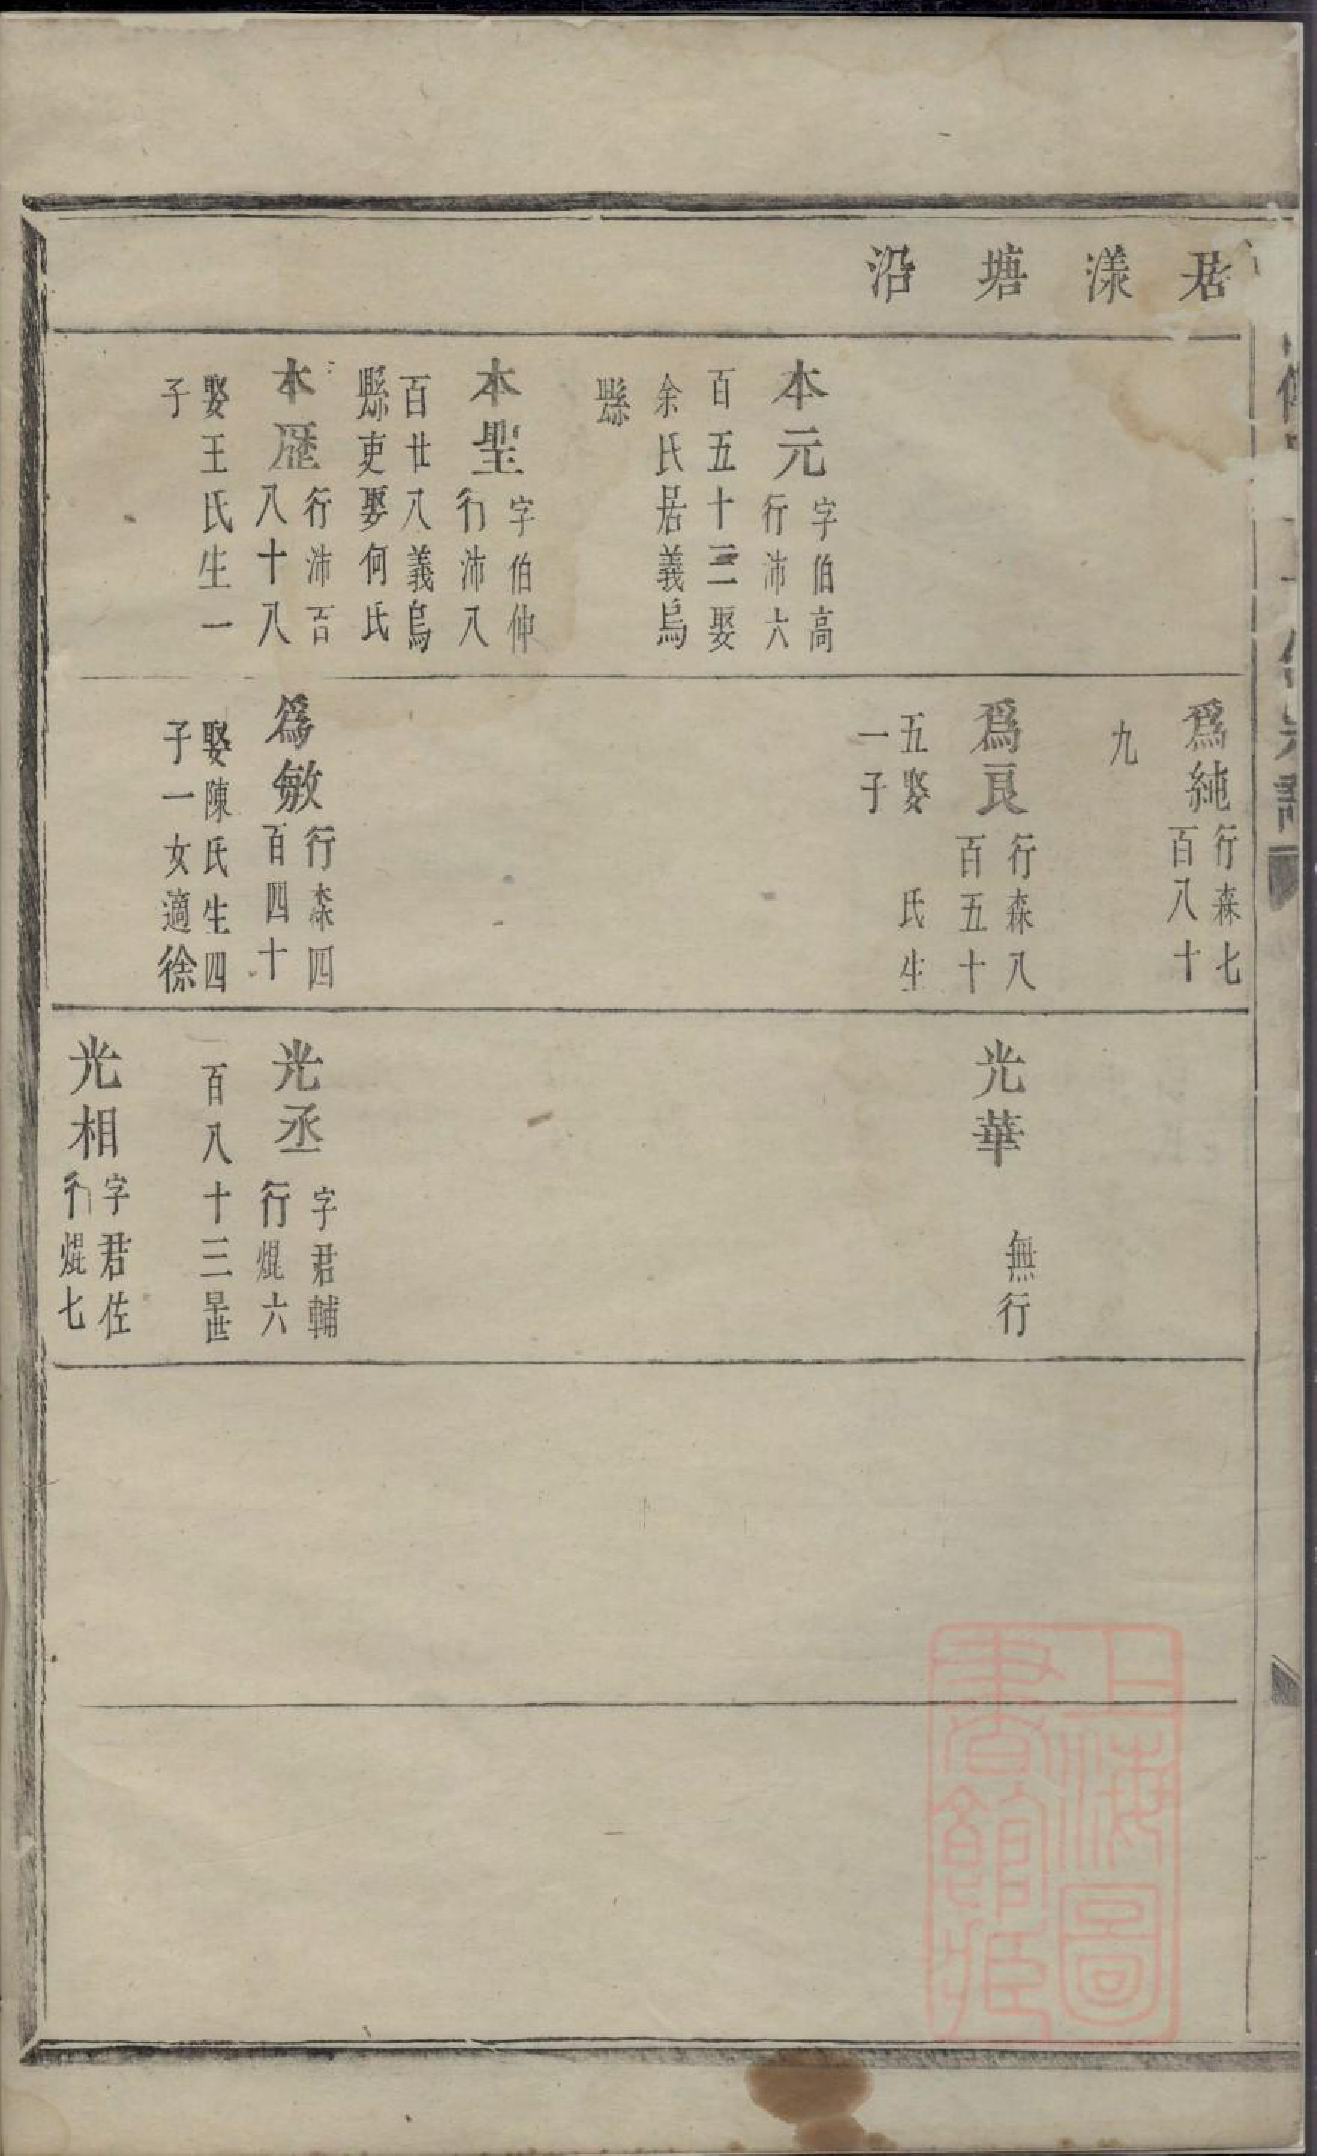 居漾塘沿
本元
字伯高
行沛六
百五十三娶
余氏居義烏
縣
本聖
字伯仲
行沛八
百廿八義烏
縣吏娶何氏
本歷
行沛百
八十八
娶王氏生一
子
為純
行森七
百八十
九
為良
行森八
百五十
五娶 氏生
一子
為敏
行森四
百四十
娶陳氏生四
子一女適徐
光華
無行
光丞
字君輔
行焜六
百八十三早世
光相
字君佐
行焜七
上海圖
書館藏